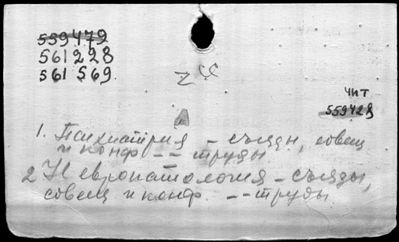 559479
561228
561569.
чит
559428
1. Психиатрия – съезды, совещ
и конф -- труды
2 Невропатология – съезды,
совещ и конф. -- труды.